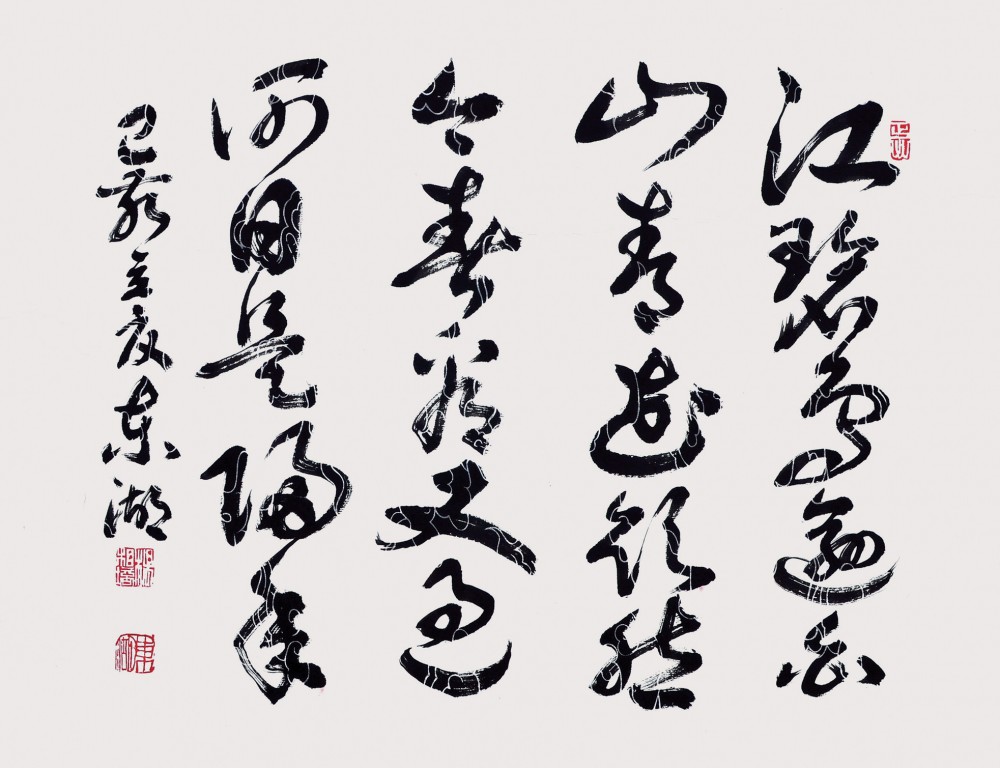 江碧鳥逾白
山青花欲然
今春看又過
何日是歸年
己亥立夏東湖